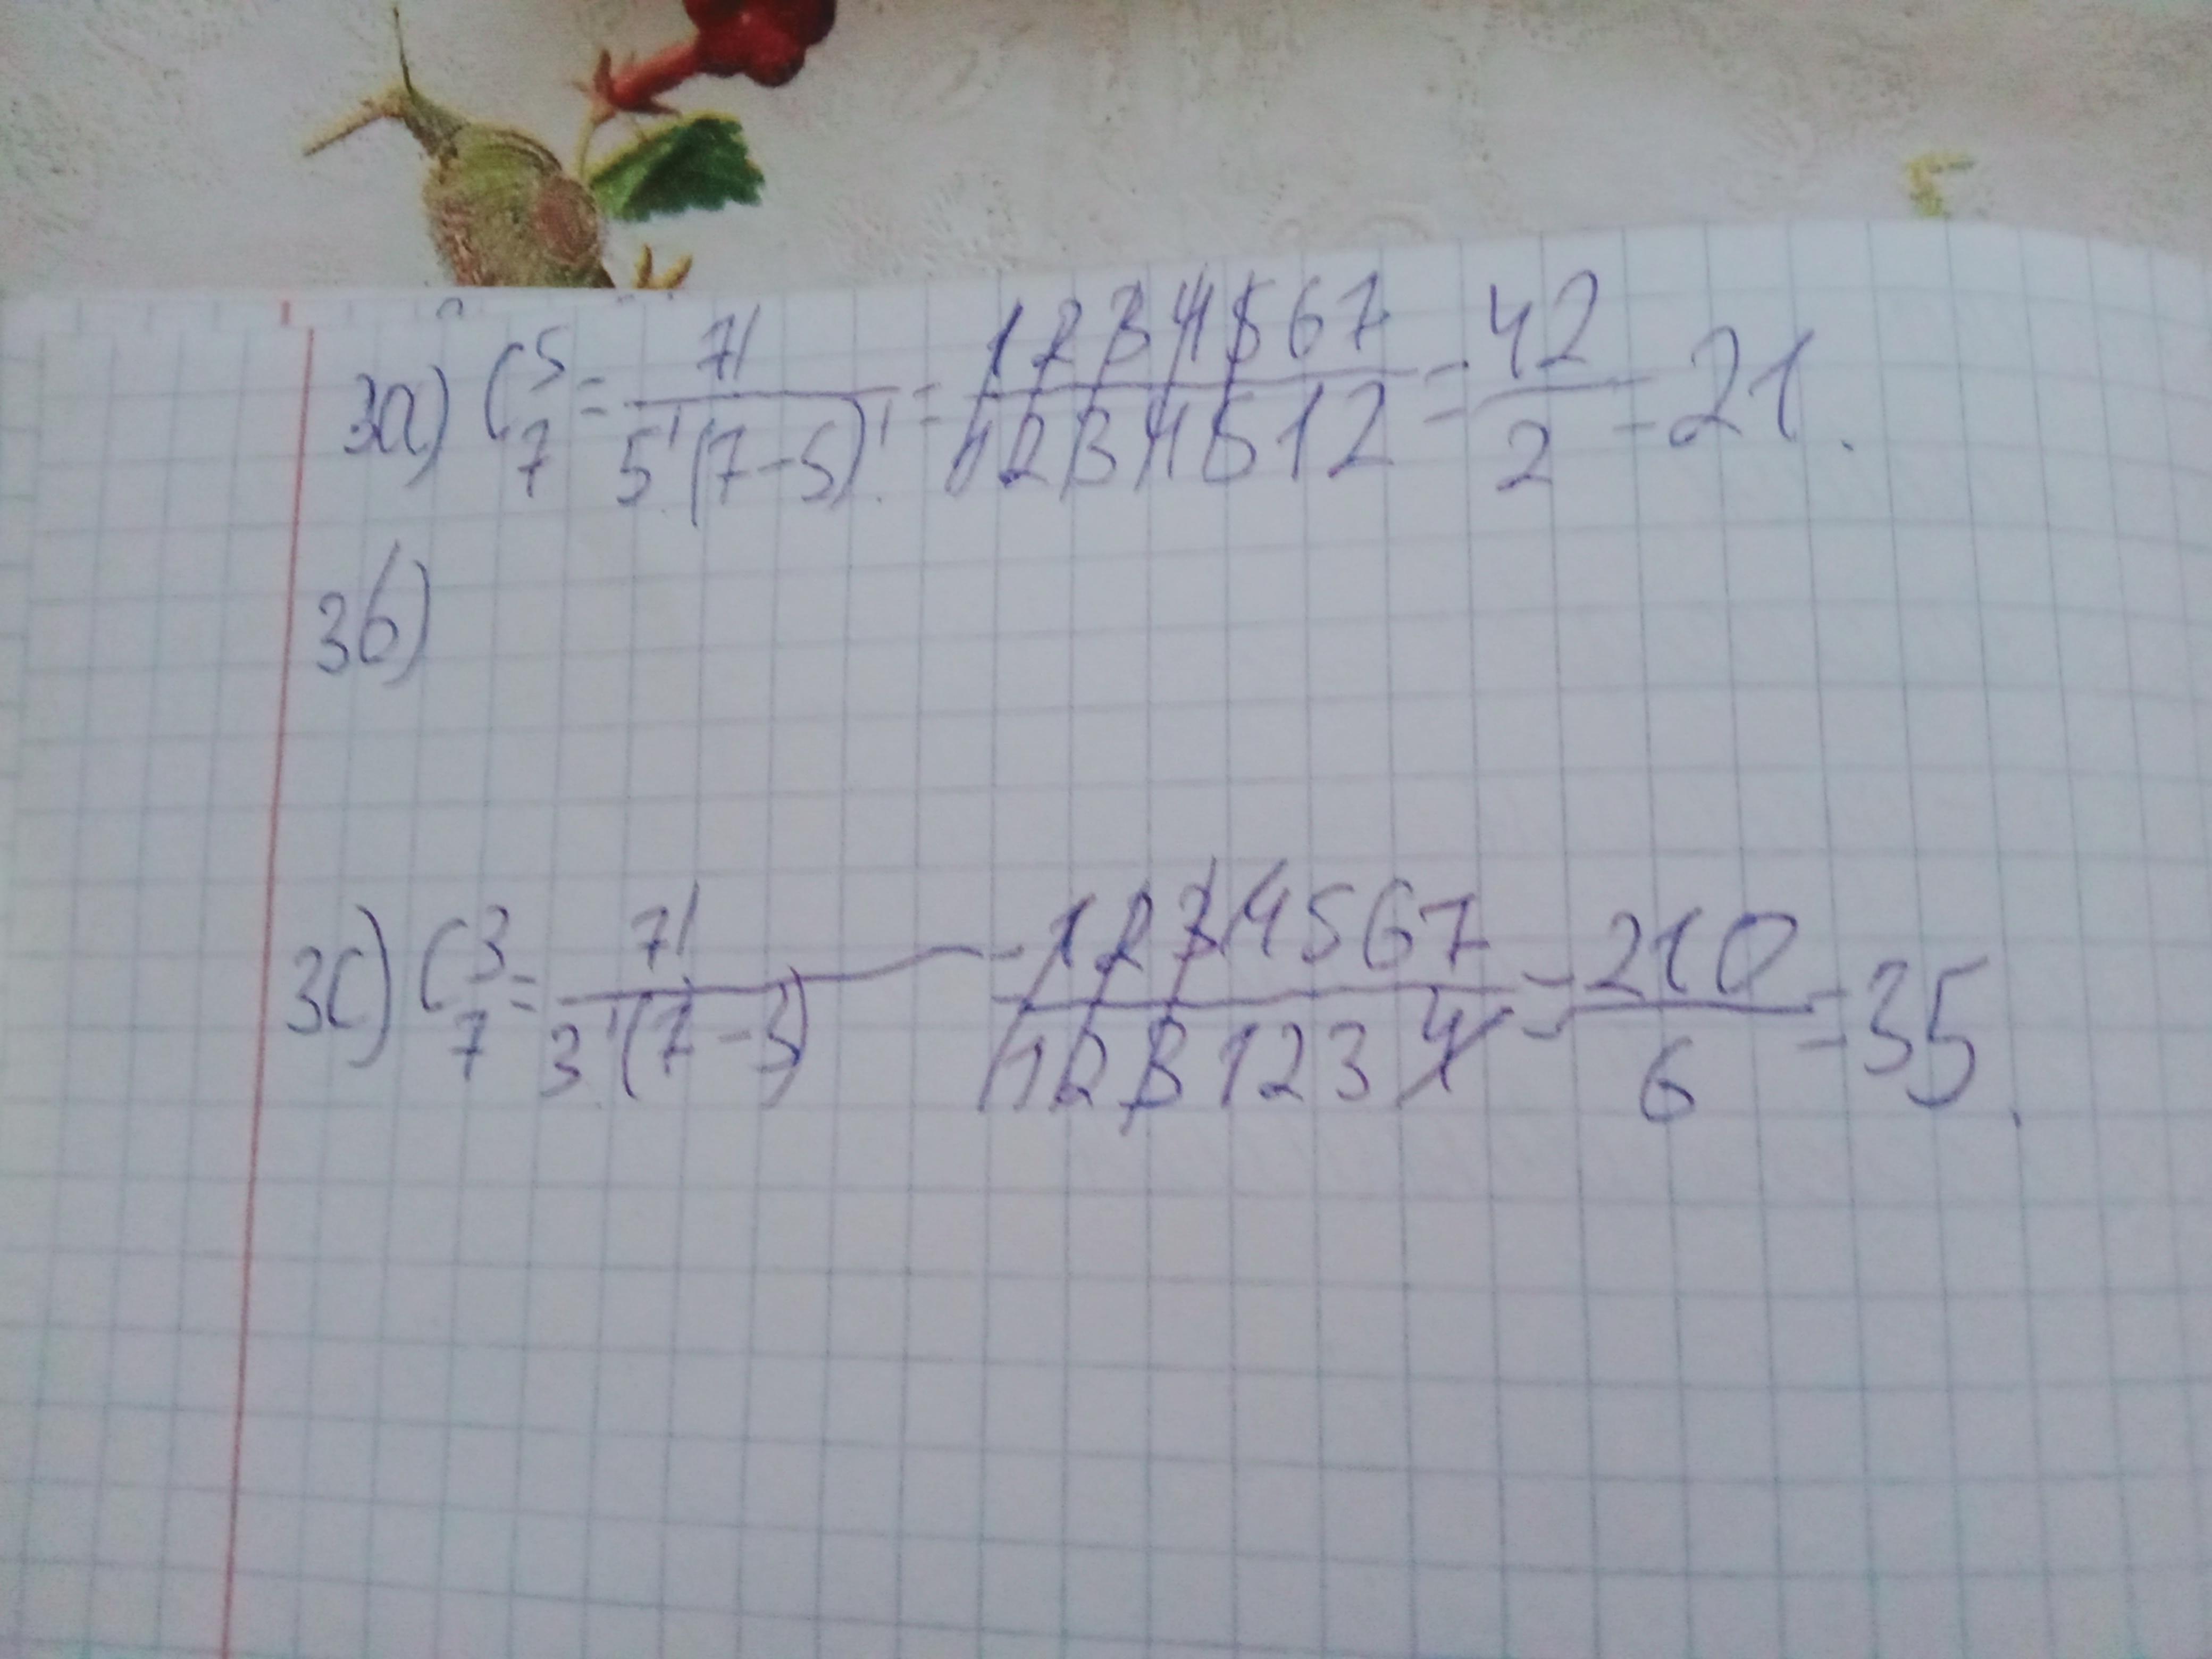 3a) C 5 7 = 7! / 5!(7-5)! = 1234567 / 1234512 = 42 / 2 = 21.
3b)
3c) C 3 7 = 7! / 3!(7-3) = 1234567 / 1231234 = 210 / 6 = 35.